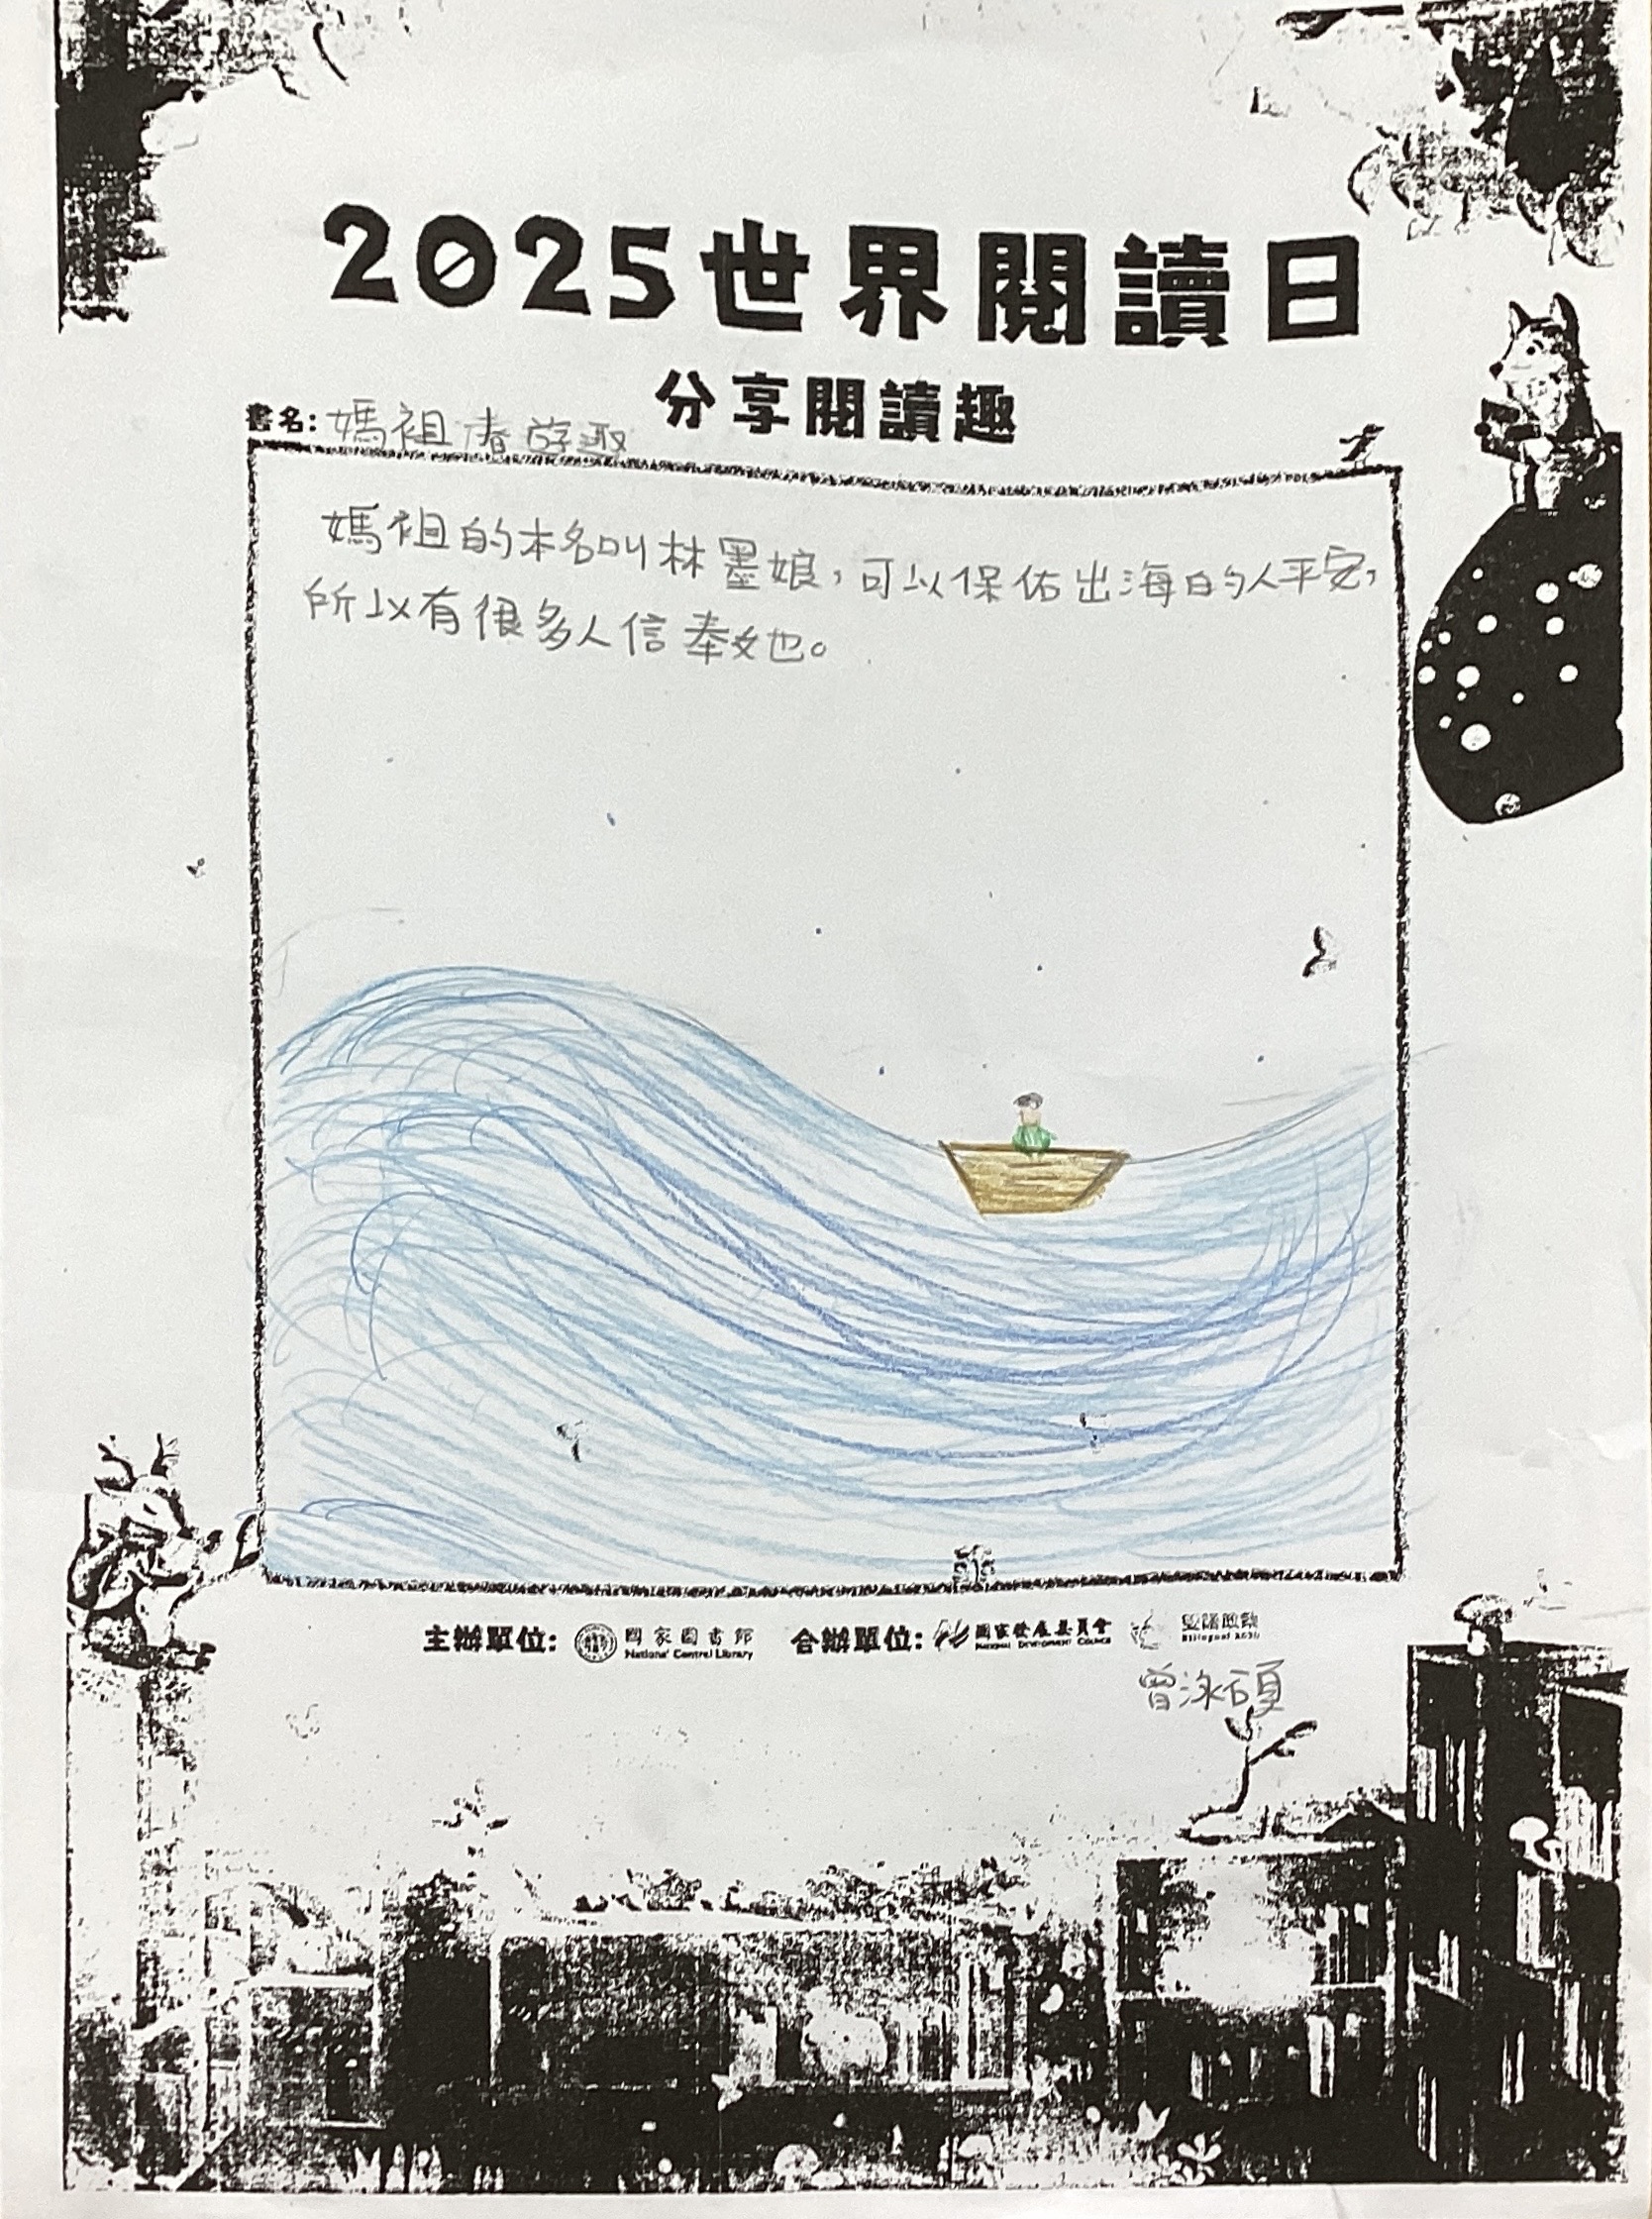 2025世界閱讀日
分享閱讀趣
書名：媽祖春游趣
媽祖的本名叫林墨娘，可以保佑出海的人平安，
所以有很多人信奉她。
主辦單位： 國家圖書館 National Central Library 合辦單位： 國家發展委員會 NATIONAL DEVELOPMENT COUNCIL
曾泳碩